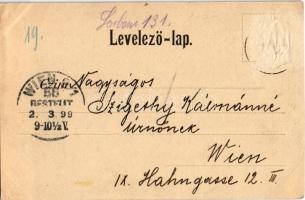 19.
Levelező-lap.
WIEN
BESTELLT
2. 3. 99
9-10½V.
Nagyságos
Szigethy Kálmánné
úrnőnek
Wien
IX. Hahngasse 12. III.